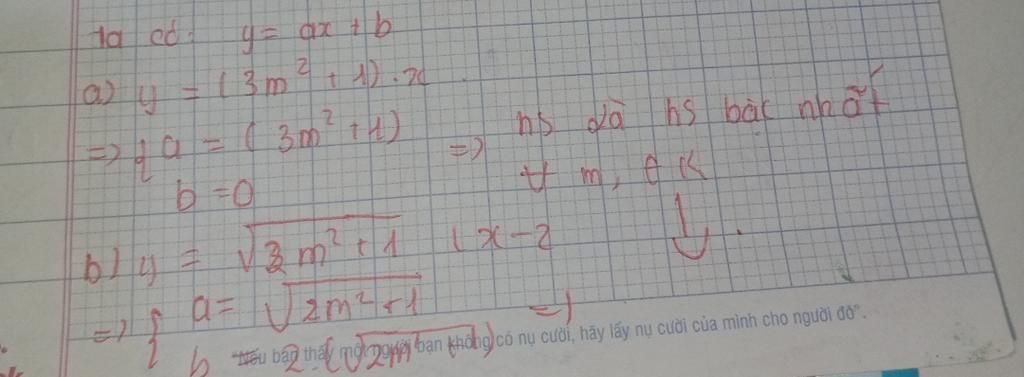 ta có: y = ax + b
a) y = (3m² + 1).x
=> { a = (3m² + 1) => hs là hs bậc nhất
b = 0 ∀ m, ∈ R
b) y = √3m² + 1 (x - 2
=> { a = √2m² + 1 =>
b 2.(√2m
Nếu bạn thấy một người bạn không có nụ cười, hãy lấy nụ cười của mình cho người đó".